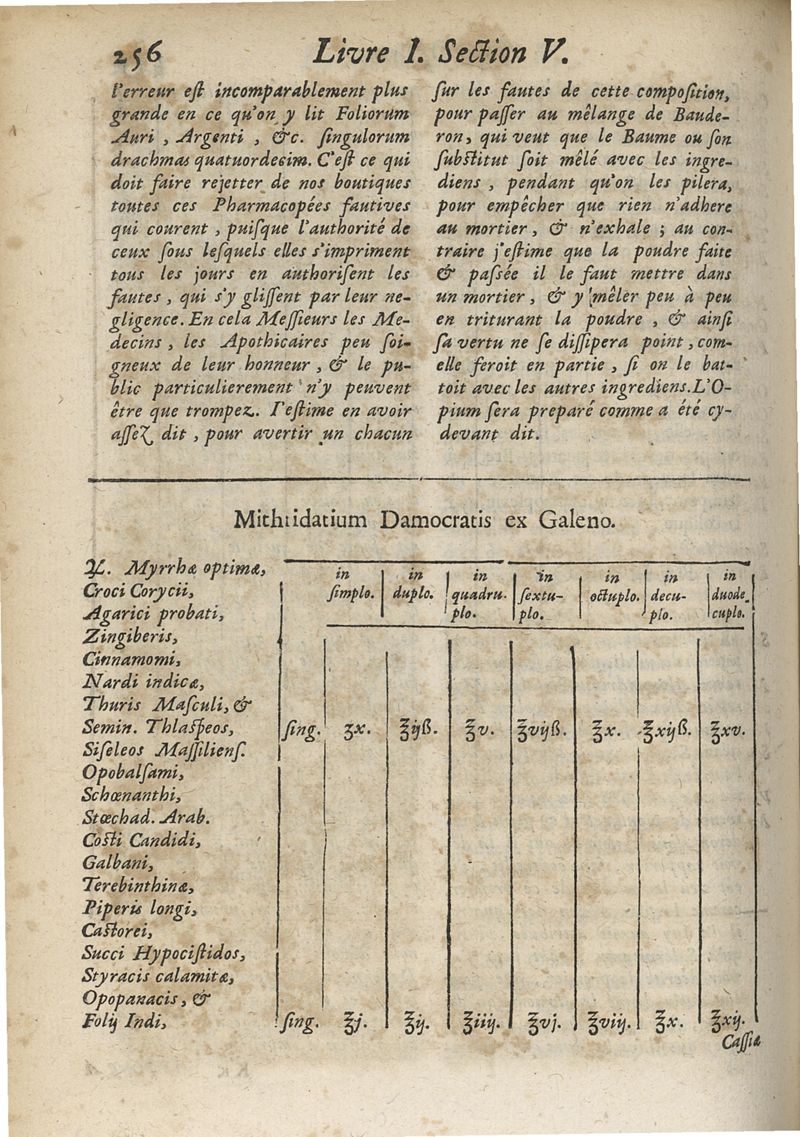 256 Livre I. Section V.
l'erreur est incomparablement plus
grande en ce qu'on y lit Foliorum
Auri , Argenti , &c. singulorum
drachmas quatuordecim. C'est ce qui
doit faire rejetter de nos boutiques
toutes ces Pharmacopées fautives
qui courent , puisque l'authorité de
ceux sous lesquels elles s'impriment
tous les jours en authorisent les
fautes , qui s'y glissent par leur ne-
gligence. En cela Messieurs les Me-
decins , les Apothicaires peu soi-
gneux de leur honneur , & le pu-
blic particulierement n'y peuvent
être que trompez. I'estime en avoir
assez dit , pour avertir un chacun
sur les fautes de cette composition,
pour passer au mêlange de Baude-
ron, qui veut que le Baume ou son
substitut soit mêlé avec les ingre-
diens , pendant qu'on les pilera,
pour empêcher que rien n'adhere
au mortier , & n'exhale ; au con-
traire j'estime que la poudre faite
& passée il le faut mettre dans
un mortier , & y mêler peu à peu
en triturant la poudre , & ainsi
sa vertu ne se dissipera point , com-
elle feroit en partie , si on le bat-
toit avec les autres ingrediens. L'O-
pium sera preparé comme a été cy-
devant dit.
Mithridatium Damocratis ex Galeno.
in simplo. in duplo. in quadru-plo. in sextu-plo. in octuplo. in decu-plo. in duode-cuplo.
℞. Myrrhæ optimæ,
Croci Corycii,
Agarici probati,
Zingiberis,
Cinnamomi,
Nardi indicæ,
Thuris Masculi, &
Semin. Thlaspeos, sing. ʒx. ℥ijß. ℥v. ℥vijß. ℥x. ℥xijß. ℥xv.
Siseleos Massiliens.
Opobalsami,
Schœnanthi,
Stœchad. Arab.
Costi Candidi,
Galbani,
Terebinthinæ,
Piperis longi,
Castorei,
Succi Hypocistidos,
Styracis calamitæ,
Opopanacis, &
Folij Indi, sing. ℥j. ℥ij. ℥iiij. ℥vj. ℥viij. ℥x. ℥xij.
Cassiæ